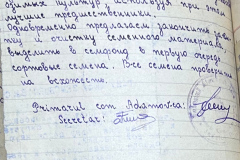 озимых культур используя при этом
лучшие предшественники.
Одновременно предлагаем закончить за
тку и очистку семенного материала,
выделить в семфонд в первую очередь
сортовые семена. Все семена проверить
на всхожесть.
Primarul com Adamovca:
Secretar: